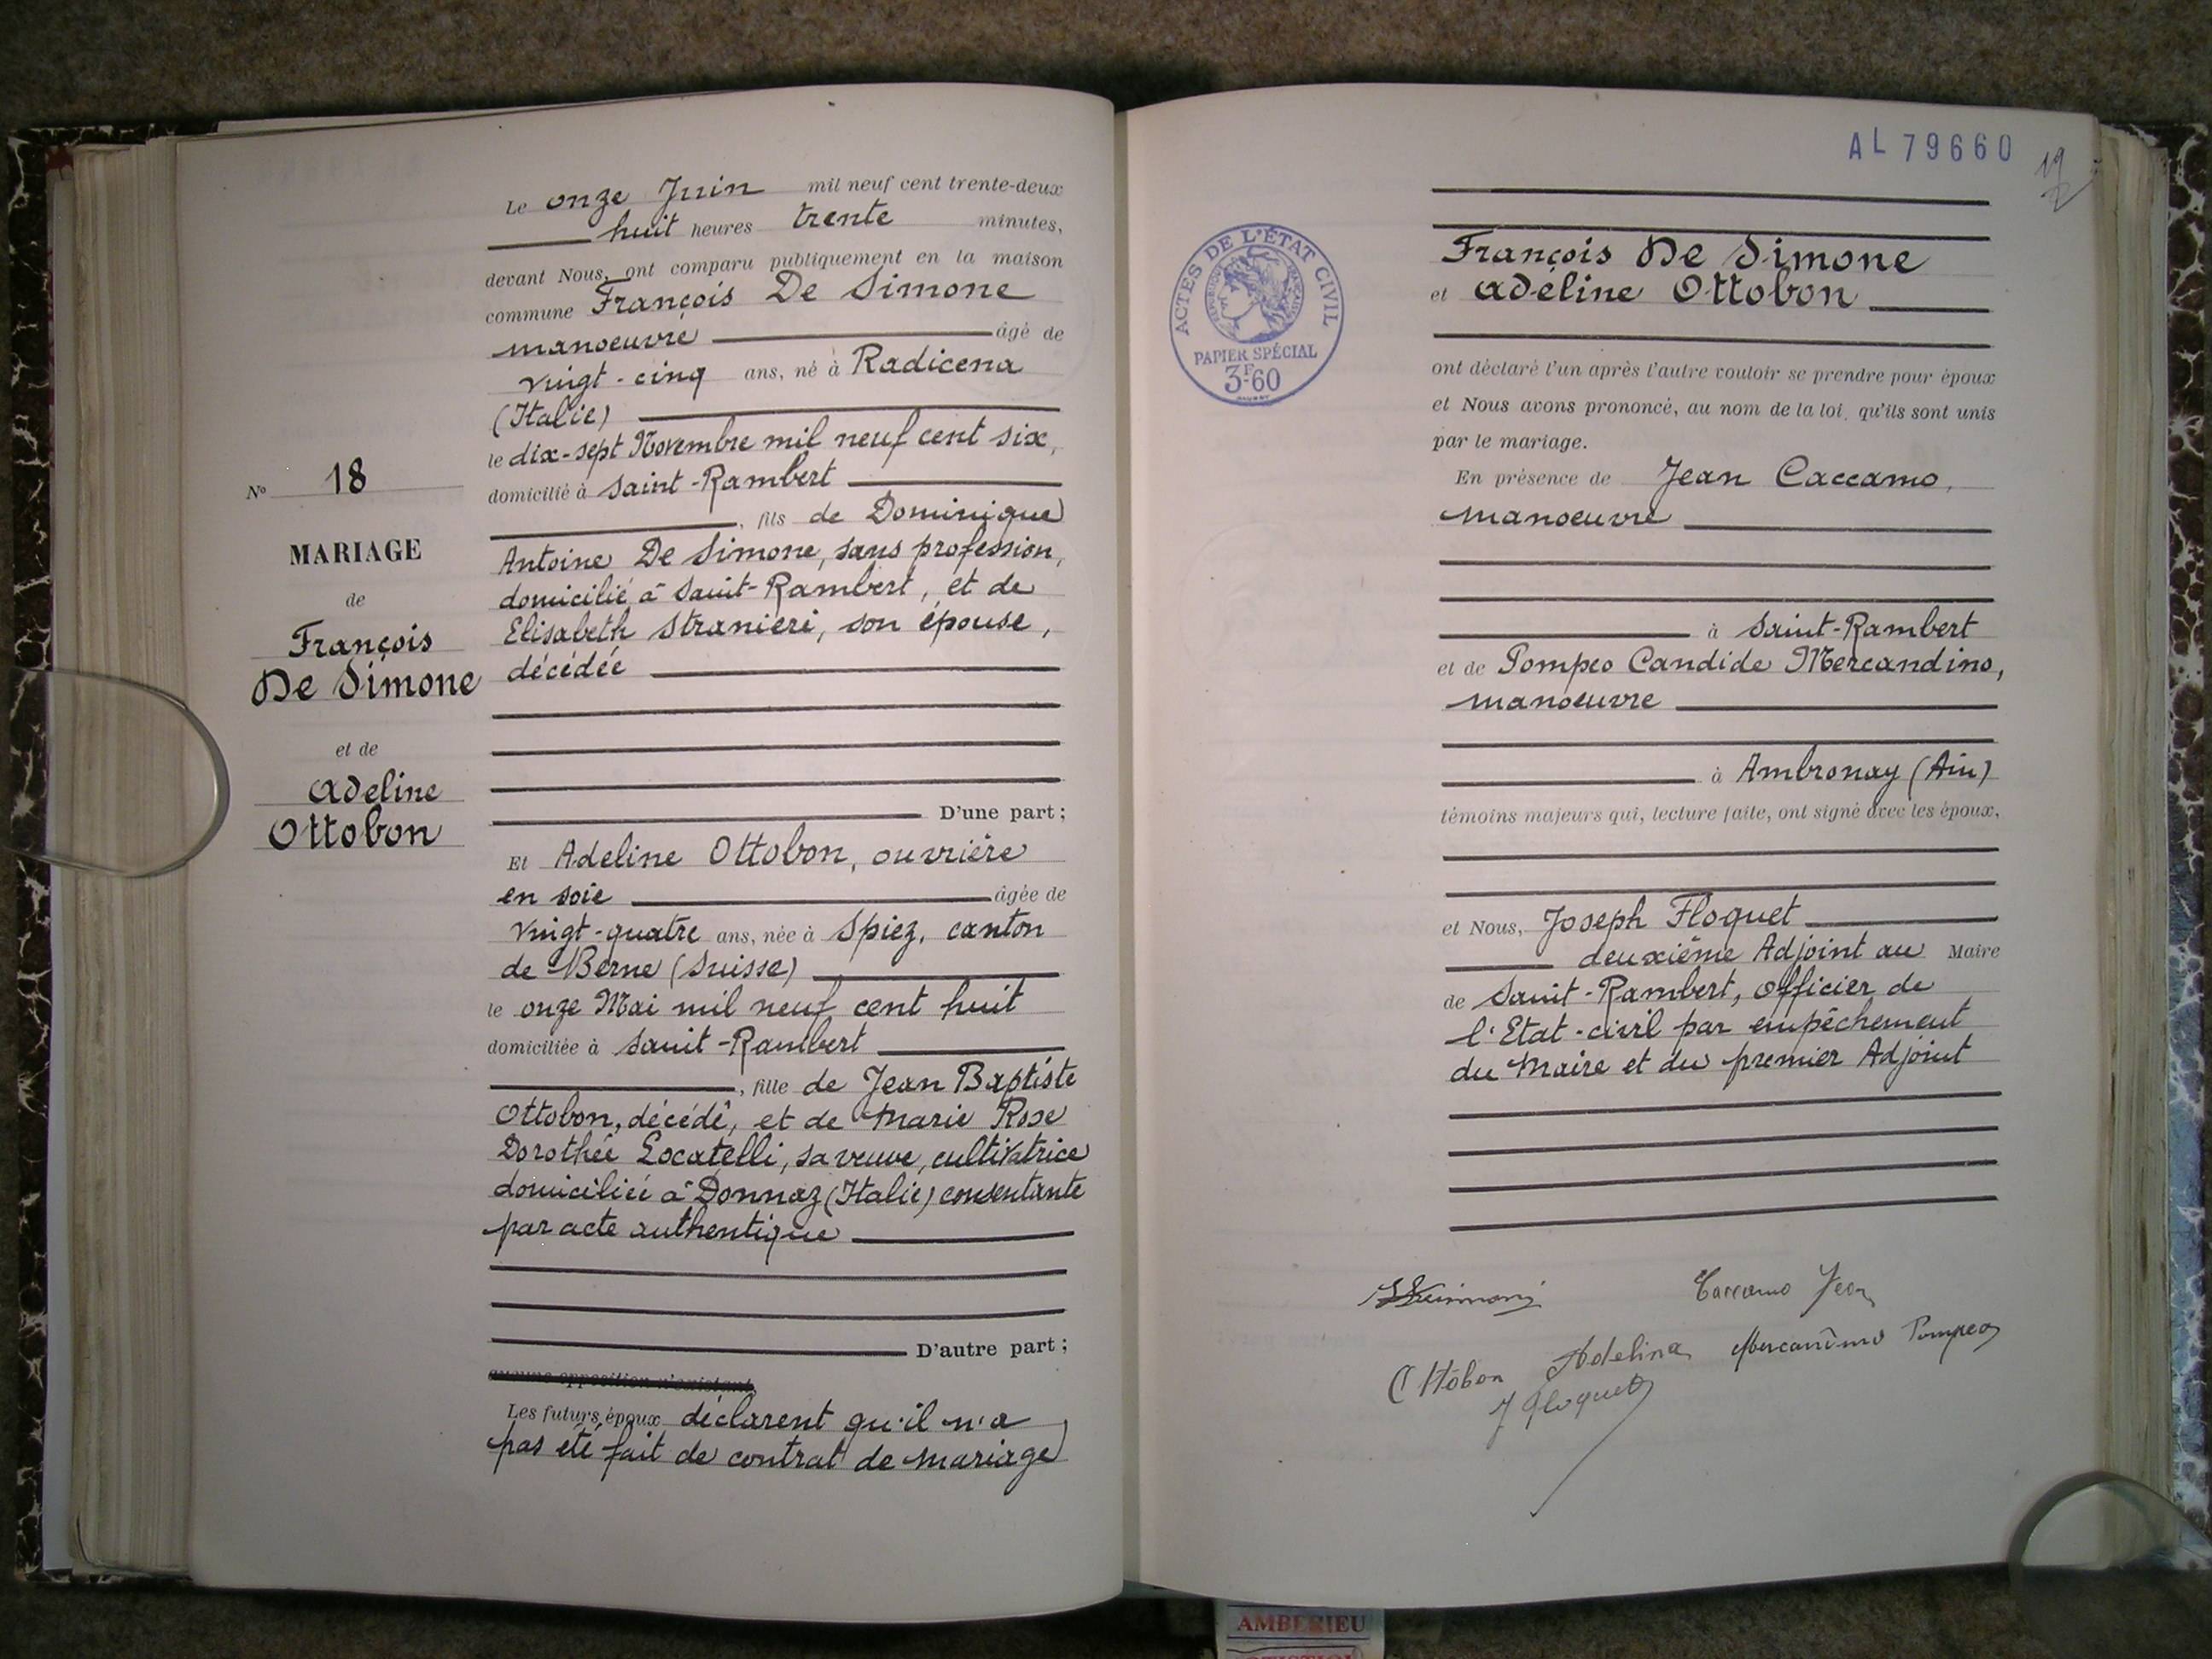 Le onze Juin mil neuf cent trente-deux
huit heures trente minutes,
devant Nous, ont comparu publiquement en la maison
commune François De Simone
manoeuvre âgé de
vingt-cinq ans, né à Radicena
(Italie)
le dix-sept Novembre mil neuf cent six,
domicilié à Saint-Rambert
, fils de Dominique
Antoine De Simone, sans profession,
domicilié à Saint-Rambert, et de
Elisabeth Stranieri, son épouse,
décédée
D'une part;
Et Adeline Ottobon, ouvrière
en soie âgée de
vingt-quatre ans, née à Spiez, canton
de Berne (Suisse)
le onze Mai mil neuf cent huit
domiciliée à Saint-Rambert
, fille de Jean Baptiste
Ottobon, décédé, et de Marie Rose
Dorothée Locatelli, sa veuve, cultivatrice
domiciliée à Donnaz (Italie) consentante
par acte authentique
D'autre part;
aucune opposition n'existant
Les futurs époux déclarent qu'il n'a
pas été fait de contrat de mariage
No 18
MARIAGE
de
François
De Simone
et de
Adeline
Ottobon
AL 79660
19
ACTES DE L'ÉTAT CIVIL
RÉPUBLIQUE FRANÇAISE
PAPIER SPÉCIAL
3F60
François De Simone
et Adeline Ottobon
ont déclaré l'un après l'autre vouloir se prendre pour époux
et Nous avons prononcé, au nom de la loi, qu'ils sont unis
par le mariage.
En présence de Jean Caccamo,
manoeuvre
à Saint-Rambert
et de Pompeo Candide Mercandino,
manoeuvre
à Ambronay (Ain)
témoins majeurs qui, lecture faite, ont signé avec les époux,
et Nous, Joseph Floquet
deuxième Adjoint au Maire
de Saint-Rambert, officier de
l'Etat-civil par empêchement
du Maire et du premier Adjoint
Caccamo Jean
Ottobon Adelina Mercandino Pompeo
J Floquet
AMBERIEU